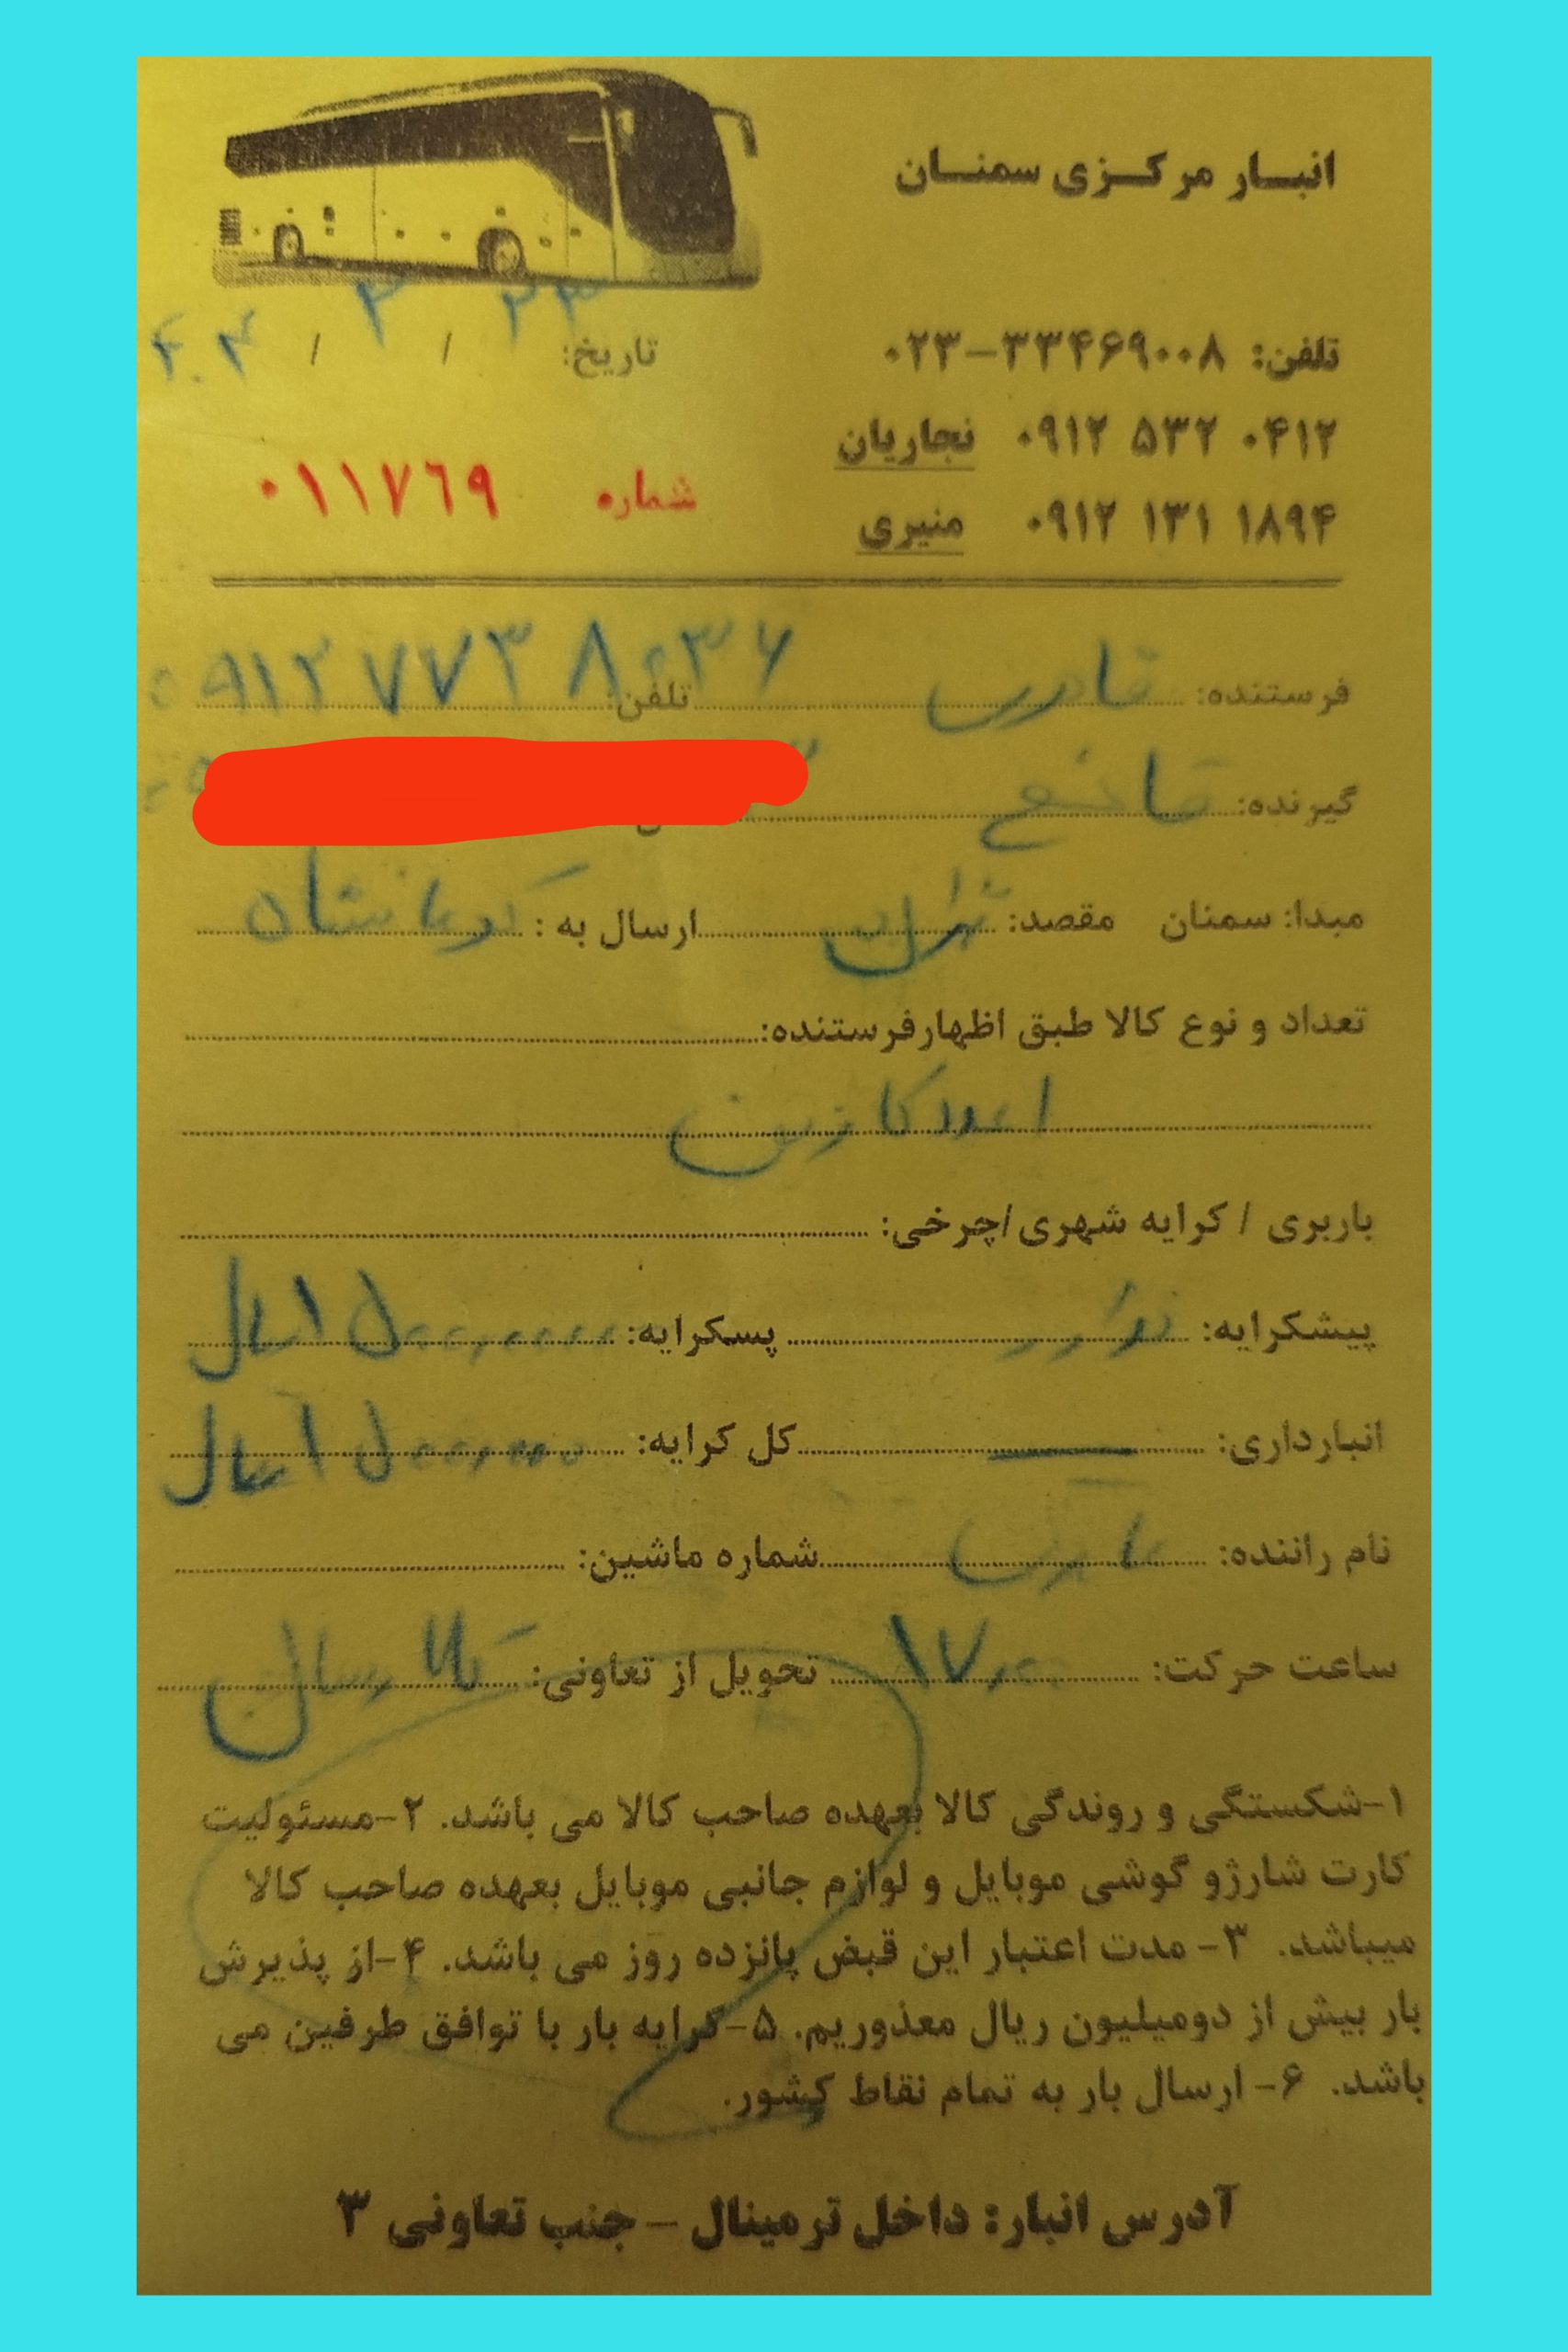 انبار مرکزی سمنان
تلفن: ۰۲۳-۳۳۴۶۹۰۰۸
تاریخ: ۲۳ / ۳ / ۴۰۴
۰۹۱۲ ۵۳۲ ۰۴۱۲ نجاریان
شماره ۰۱۱۷۶۹
۰۹۱۲ ۱۳۱ ۱۸۹۴ منیری
فرستنده: تلفن: ۰۹۱۲۷۷۳۸۰۳۶
گیرنده:
مبدا: سمنان مقصد: تهران ارسال به : کرمانشاه
تعداد و نوع کالا طبق اظهارفرستنده:
۱ عدد کارتن
باربری / کرایه شهری/چرخی:
پیشکرایه: ندارد پسکرایه:
انبارداری: — کل کرایه:
نام راننده: شماره ماشین:
ساعت حرکت: ۱۷,۰۰ تحویل از تعاونی:
۱-شکستگی و روندگی کالا بعهده صاحب کالا می باشد. ۲-مسئولیت
کارت شارژو گوشی موبایل و لوازم جانبی موبایل بعهده صاحب کالا
میباشد. ۳- مدت اعتبار این قبض پانزده روز می باشد. ۴-از پذیرش
بار بیش از دومیلیون ریال معذوریم. ۵-کرایه بار با توافق طرفین می
باشد. ۶- ارسال بار به تمام نقاط کشور.
آدرس انبار: داخل ترمینال - جنب تعاونی ۳